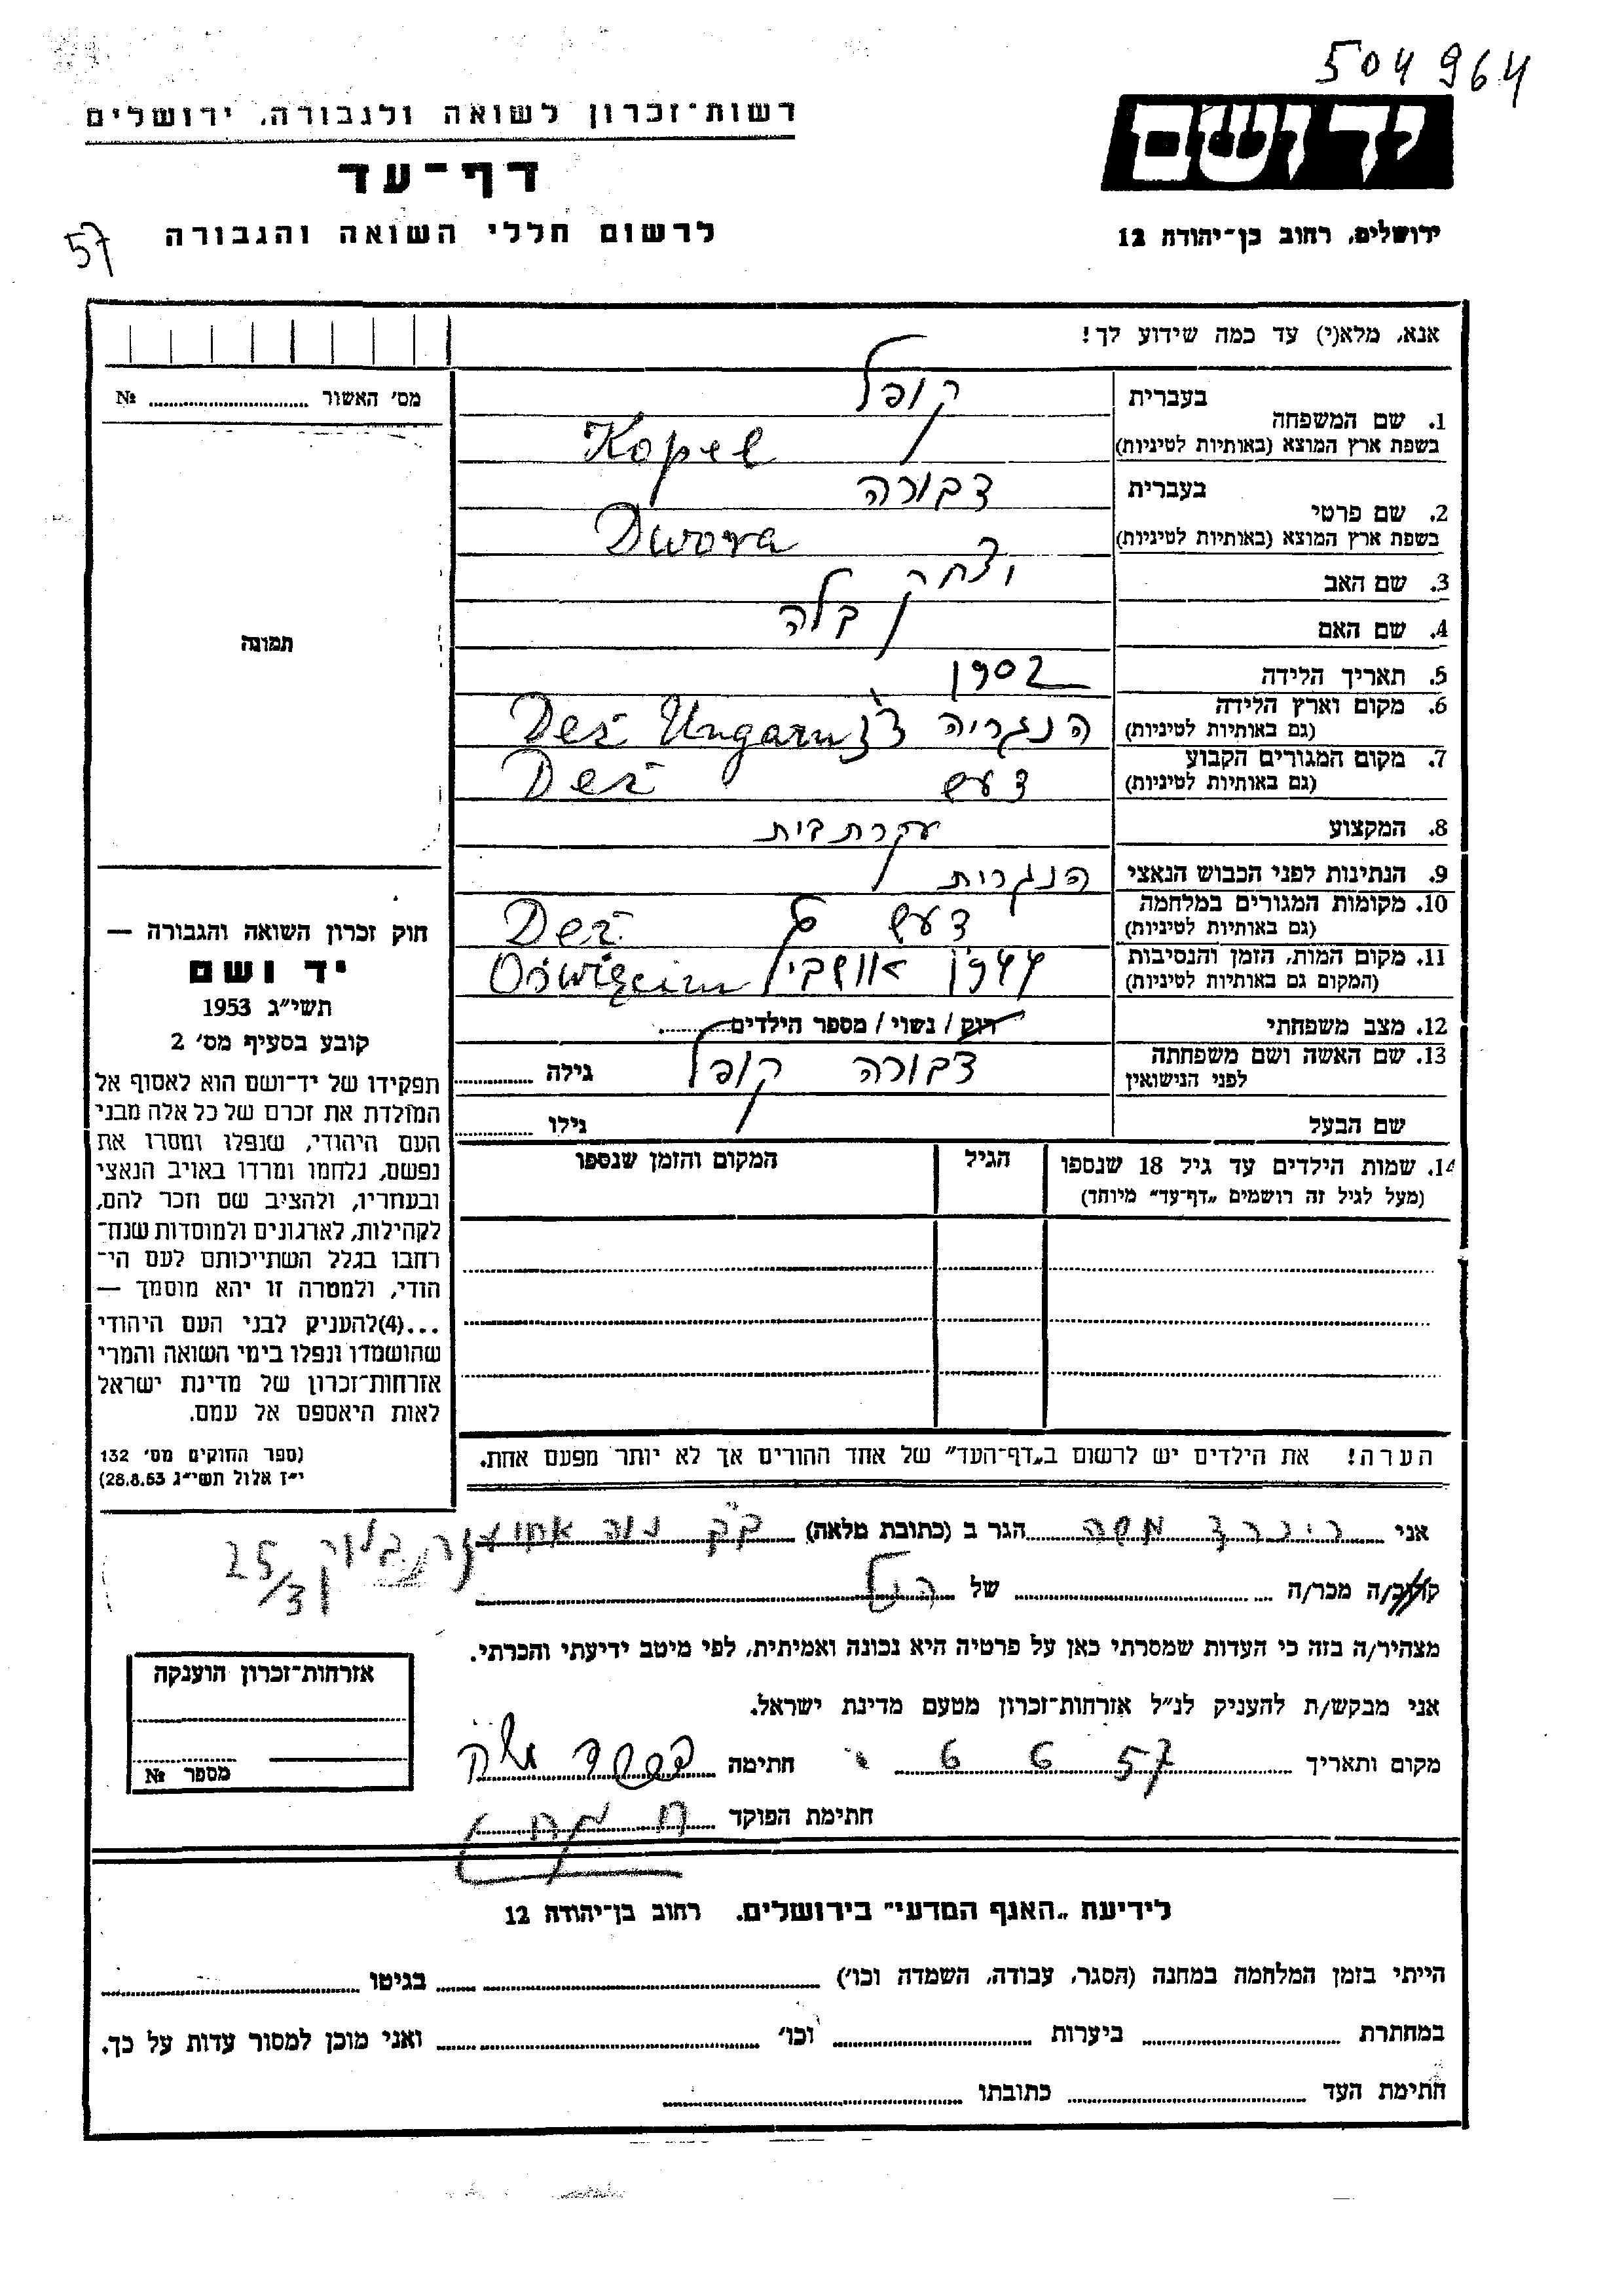 504964
יד ושם
רשות-זכרון לשואה ולגבורה, ירושלים
דף-עד
לרשום חללי השואה והגבורה
57
ירושלים, רחוב בן-יהודה 12
אנא, מלא(י) עד כמה שידוע לך!
מס' האשור № ........
תמונה
בעברית קופל
1. שם המשפחה
בשפת ארץ המוצא (באותיות לטיניות) Kopel
בעברית דבורה
2. שם פרטי
בשפת ארץ המוצא (באותיות לטיניות) Dwora
3. שם האב יצחק
4. שם האם בלה
5. תאריך הלידה 1902
6. מקום וארץ הלידה הנגריה Deż Ungarn
(גם באותיות לטיניות)
7. מקום המגורים הקבוע דעש Deż
(גם באותיות לטיניות)
8. המקצוע עקרת בית
9. הנתינות לפני הכבוש הנאצי הנגרית
10. מקומות המגורים במלחמה דעש Deż
(גם באותיות לטיניות)
11. מקום המות, הזמן והנסיבות 1944 Oświęcim
(המקום גם באותיות לטיניות)
12. מצב משפחתי רוק / נשוי / מספר הילדים........
13. שם האשה ושם משפחתה דבורה קופל גילה ........
לפני הנישואין
שם הבעל גילו ........
14. שמות הילדים עד גיל 18 שנספו הגיל המקום והזמן שנספו
(מעל לגיל זה רושמים „דף-עד" מיוחד)
הערה! את הילדים יש לרשום ב„דף-העד" של אחד ההורים אך לא יותר מפעם אחת.
חוק זכרון השואה והגבורה —
יד ושם
תשי"ג 1953
קובע בסעיף מס' 2
תפקידו של יד-ושם הוא לאסוף אל
המולדת את זכרם של כל אלה מבני
העם היהודי, שנפלו ומסרו את
נפשם, נלחמו ומרדו באויב הנאצי
ובעוזריו, ולהציב שם וזכר להם,
לקהילות, לארגונים ולמוסדות שנח-
רבו בגלל השתייכותם לעם הי-
הודי, ולמטרה זו יהא מוסמך —
...(4)להעניק לבני העם היהודי
שהושמדו ונפלו בימי השואה והמרי
אזרחות-זכרון של מדינת ישראל
לאות היאספם אל עמם.
(ספר החוקים מס' 132
י"ז אלול תשי"ג 28.8.53)
אני משה הגר ב (כתובת מלאה) בלוק 25/3
קרוב/ה מכר/ה של
מצהיר/ה בזה כי העדות שמסרתי כאן על פרטיה היא נכונה ואמיתית, לפי מיטב ידיעתי והכרתי.
אני מבקש/ת להעניק לנ"ל אזרחות-זכרון מטעם מדינת ישראל.
מקום ותאריך 6 6 57 חתימה
חתימת הפוקד
אזרחות-זכרון הוענקה
מספר №
לידיעת „האגף המדעי" בירושלים. רחוב בן-יהודה 12
הייתי בזמן המלחמה במחנה (הסגר, עבודה, השמדה וכו') ........ בגיטו ........
במחתרת ........ ביערות ........ וכו' ........ ואני מוכן למסור עדות על כך.
חתימת העד ........ כתובתו ........